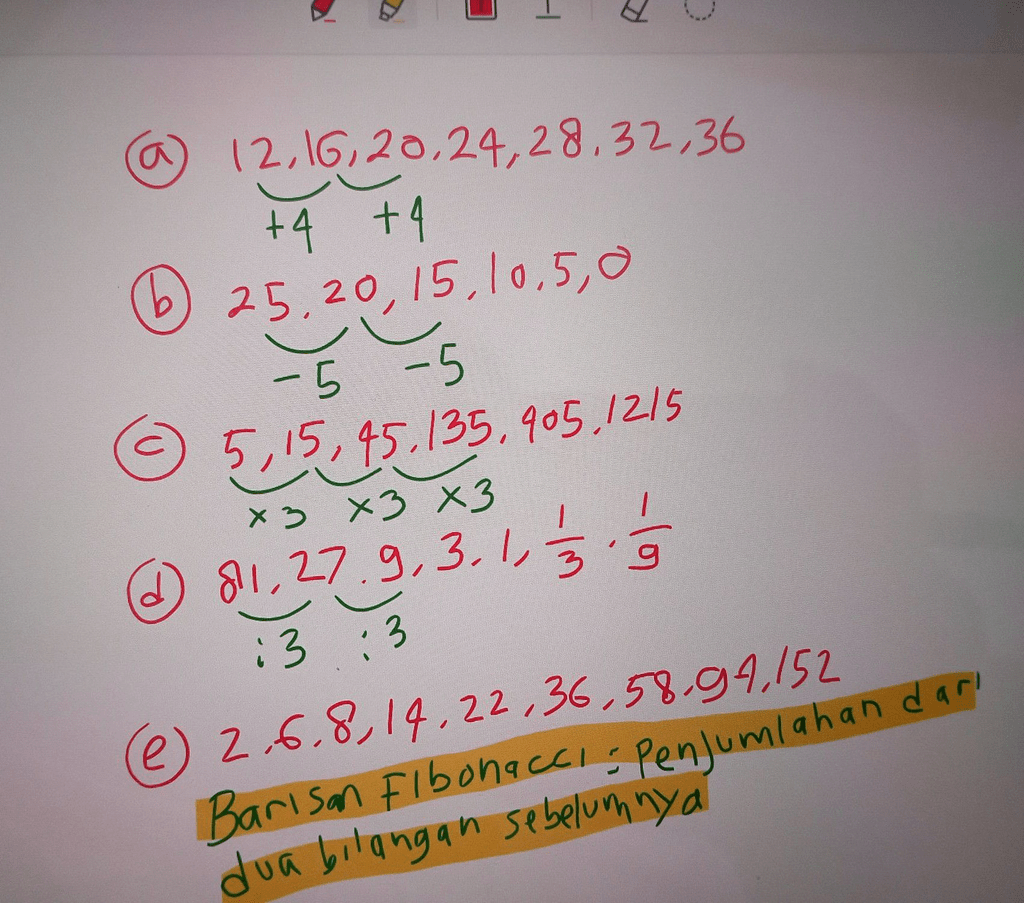 (a) 12, 16, 20, 24, 28, 32, 36
+4 +4
(b) 25, 20, 15, 10, 5, 0
-5 -5
(c) 5, 15, 45, 135, 405, 1215
×3 ×3 ×3
(d) 81, 27, 9, 3, 1, 1/3, 1/9
:3 :3
(e) 2, 6, 8, 14, 22, 36, 58, 94, 152
Barisan Fibonacci : Penjumlahan dari
dua bilangan sebelumnya